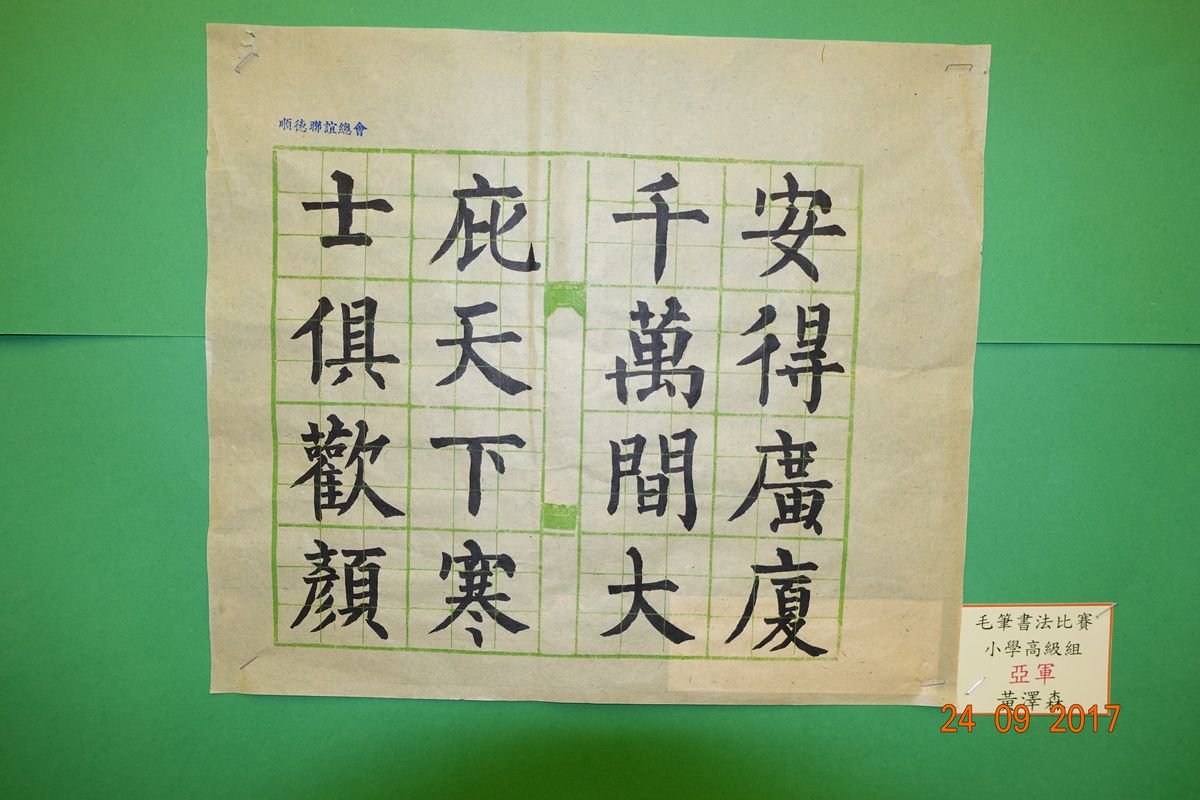 順德聯誼總會
安得廣廈
千萬間大
庇天下寒
士俱歡顏
毛筆書法比賽
小學高級組
亞軍
黃澤森
24 09 2017